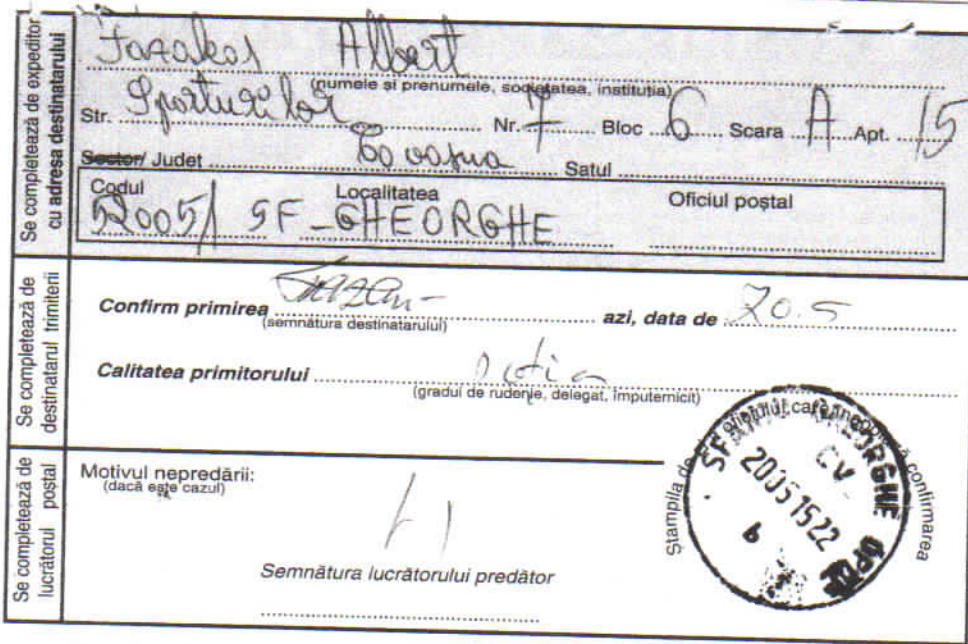 Se completează de expeditor
cu adresa destinatarului
Albert
(numele și prenumele, societatea, instituția)
Str. Sporturilor Nr. 7 Bloc 6 Scara A Apt. 15
Sector/ Județ Covasna Satul
Codul Localitatea Oficiul poștal
520051 SF-GHEORGHE
Se completează de
destinatarul trimiterii
Confirm primirea azi, data de 20.5
(semnătura destinatarului)
Calitatea primitorului soția
(gradul de rudenie, delegat, împuternicit)
Se completează de
lucrătorul poștal
Motivul nepredării:
(dacă este cazul)
Semnătura lucrătorului predător
Ștampila de confirmarea
GHEORGHE
CV
20051522